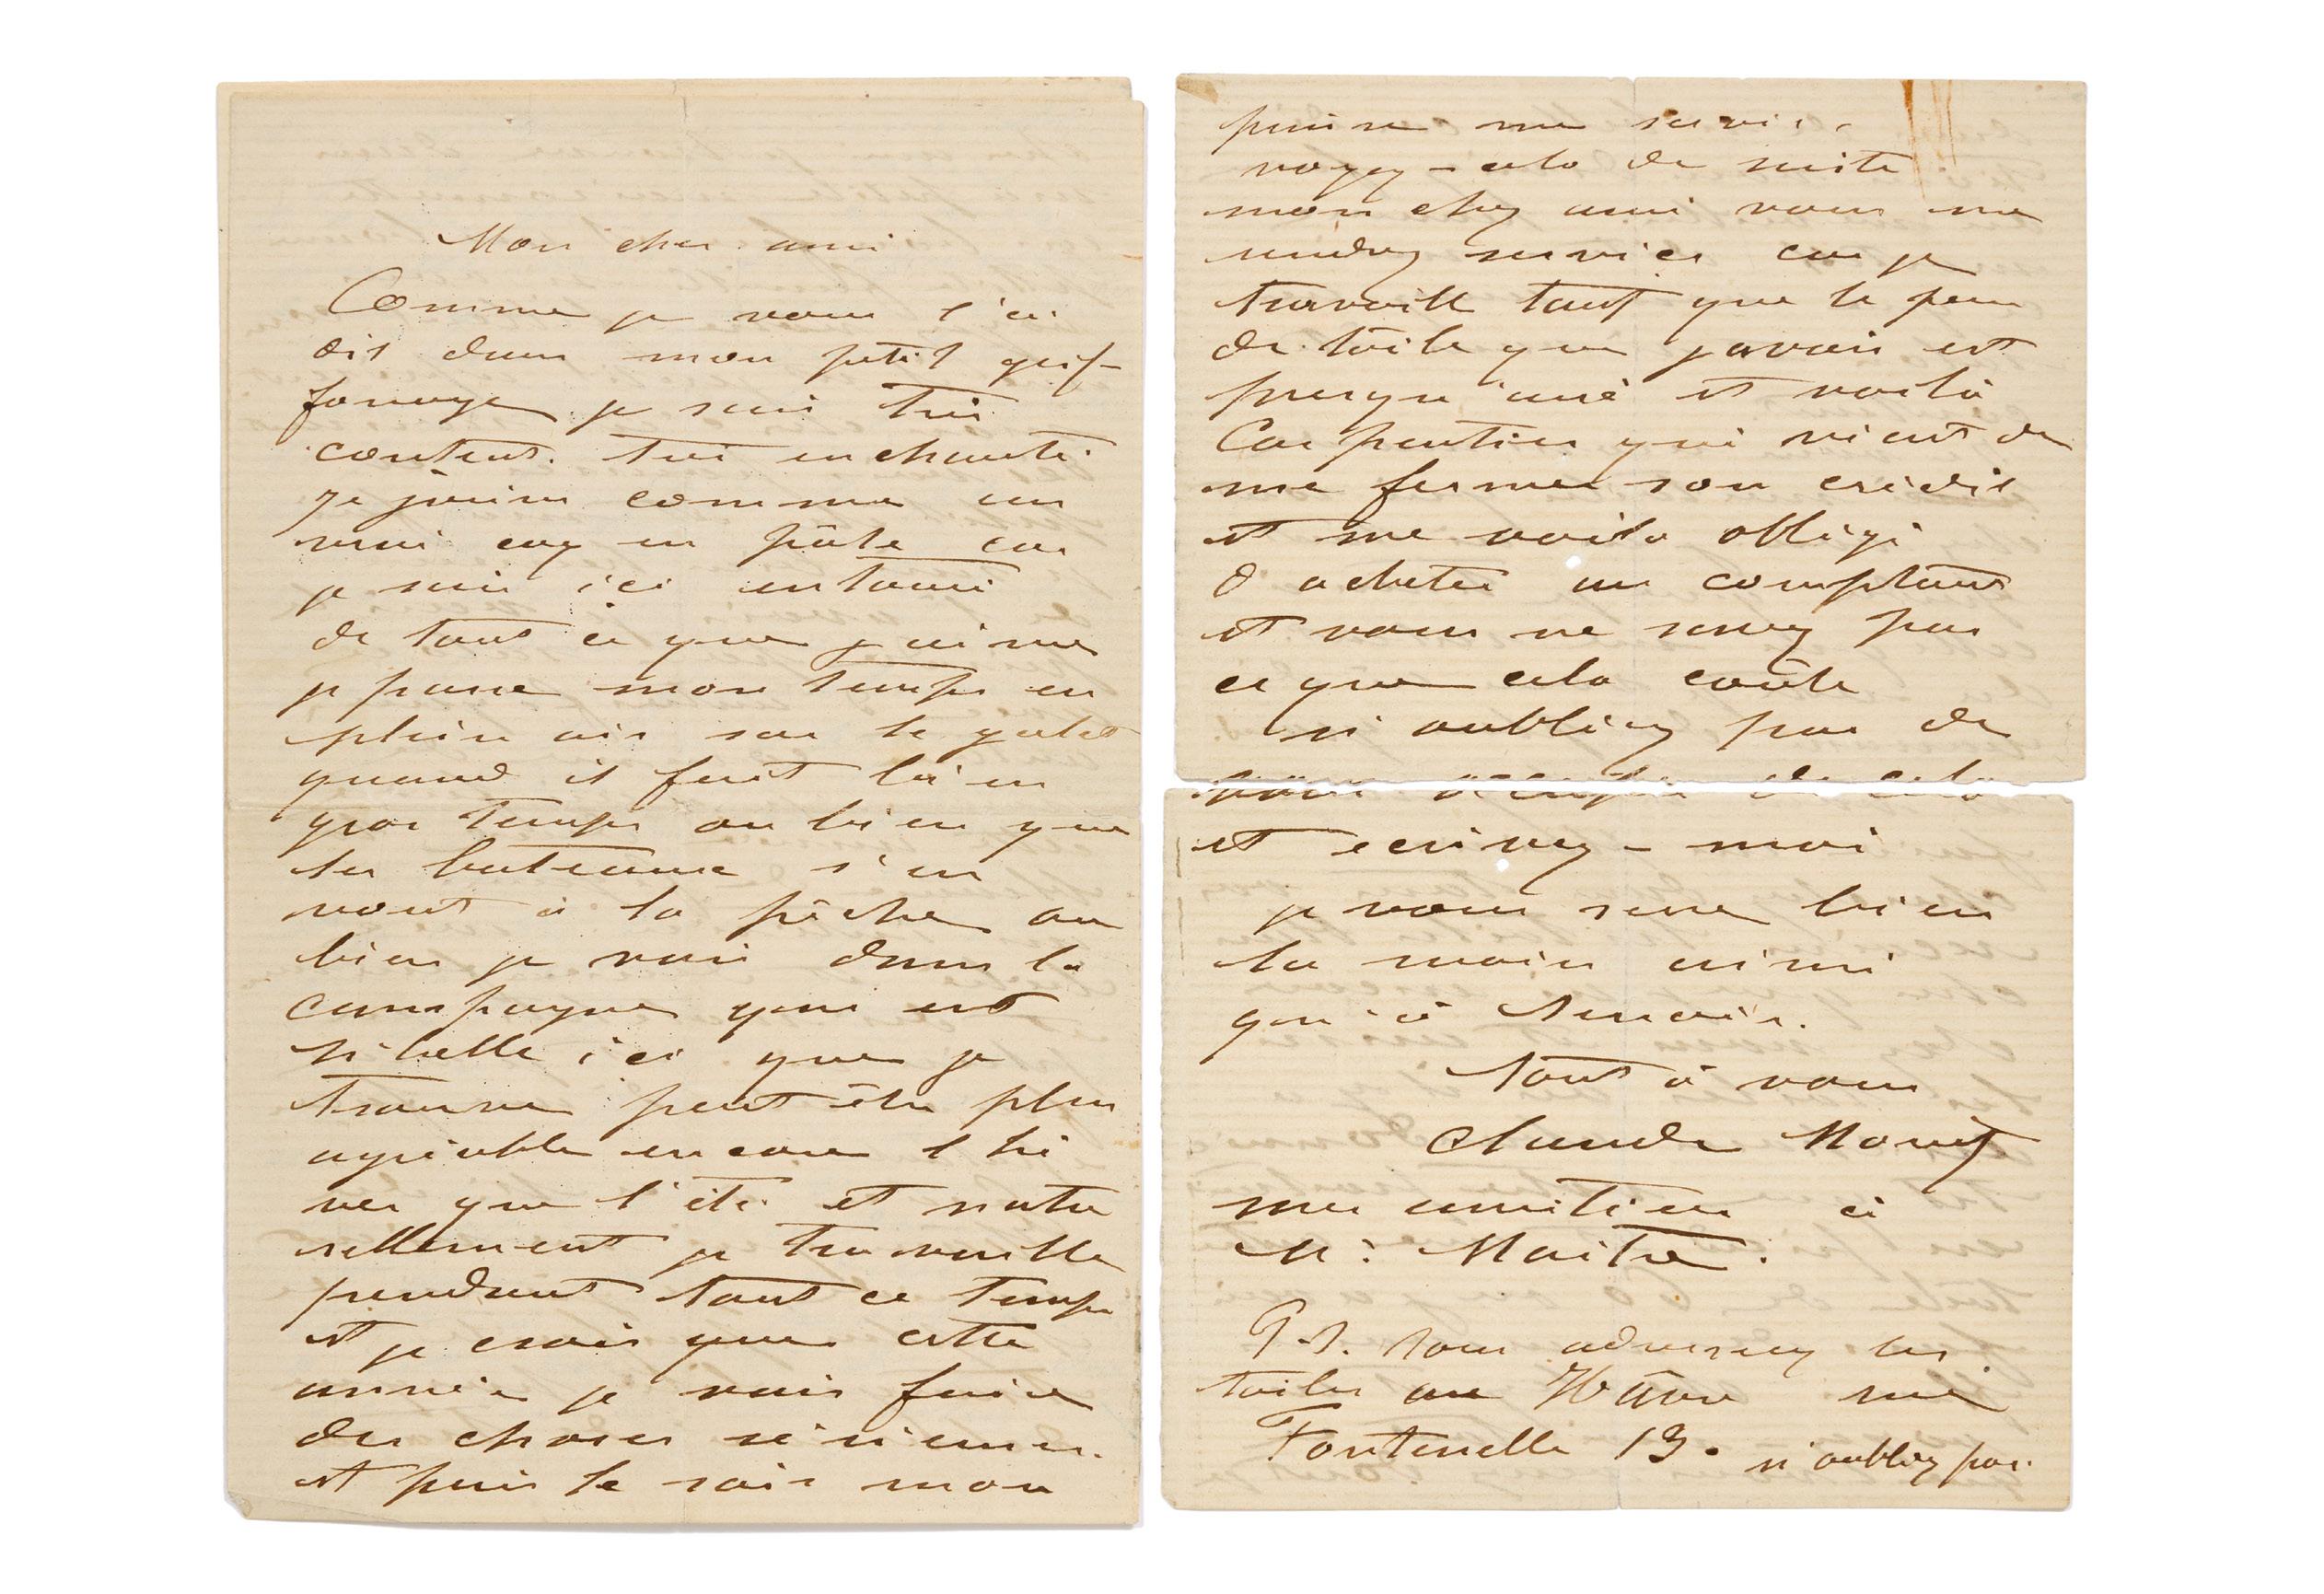 Mon cher ami
Comme je vous l'ai
dit dans mon petit grif-
fonnage je suis très
content. très enchanté.
Je suis comme un
vrai coq en pâte car
je suis ici entouré
de tout ce que j'aime
je passe mon temps en
plein air sur le galet
quand il fait bien
gros temps ou bien que
les bateaux s'en
vont à la pêche ou
bien je vais dans la
campagne qui est
si belle ici que je
trouve peut-être plus
agréable encore l'hi
ver que l'été. et natu
rellement je travaille
pendant tout ce temps
et je crois que cette
année je vais faire
des choses sérieuses.
et puis le soir mon
puisse me servir
voyez-cela de suite
mon cher ami vous me
rendrez service car je
travaille tant que le peu
de toile que j'avais est
presqu'usé et voilà
Carpentier qui vient de
me fermer son crédit
et me voila obligé
d'acheter au comptant
et vous ne savez pas
ce que cela coûte
n'oubliez pas de
vous occuper de cela
et ecrivez-moi
je vous serre bien
la main ainsi
qu'à Renoir.
Tout à vous
Claude Monet
mes amitiés à
M. Maître.
P.S. Vous adresserez les
toiles au Hâvre rue
Fontenelle 13. n'oubliez pas.